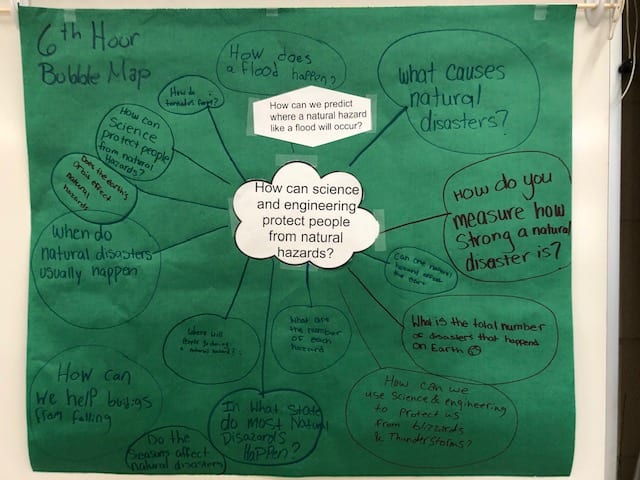 6th Hour
Bubble Map
How does
a flood happen?
How do
tornados form?
How can we predict
where a natural hazard
like a flood will occur?
What causes
natural
disasters?
How can
Science
protect people
from natural
Hazards?
Does the earth's
orbit effect
natural
hazards
How can science
and engineering
protect people
from natural
hazards?
How do you
measure how
Strong a natural
disaster is?
When do
natural disasters
usually happen
Can one natural
hazard affect the
What is the total number
of disasters that happend
on Earth
What are
the number
of each
hazard
Where will
People go during
a natural hazard?
How can we
use Science & engineering
to protect us
from blizzards
& ThunderStorms?
How can
we help buildings
from falling
In What State
do most Natural
Disazards
Happen?
Do the
Seasons affect
natural disasters